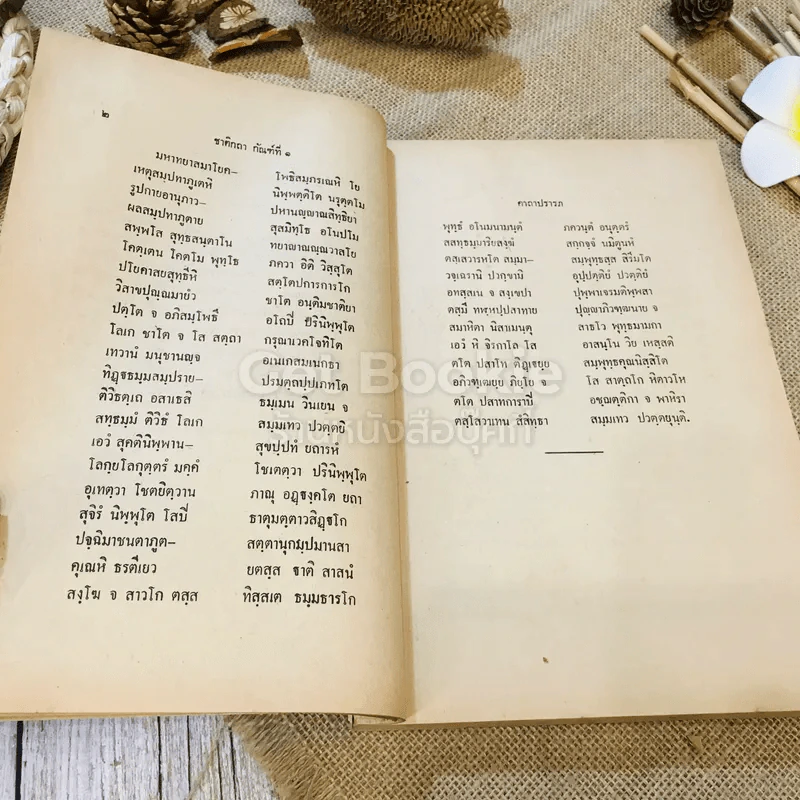 ๒
ชาติกถา กัณฑ์ที่ ๑
มหาทยาสมาโยค– โพธิสมฺภรเณหิ โย
เหตุสมฺปทาภูเตหิ นิพฺพตฺติโต นรุตฺตโม
รูปกายอานุภาว– ปหานญฺญาณสิทฺธิยา
ผลสมฺปทาภูตาย สุสมิทฺโธ อโนปโม
สพฺพโส สุทฺธสนฺตาโน ทยาญาณณฺณวาลโย
โคตฺเตน โคตโม พุทฺโธ ภควา อิติ วิสฺสุโต
ปโยคาสยสุทฺธีหิ สตฺโตปการการโก
วิสาขปุณฺณมายํว ชาโต อนฺติมชาติยา
ปตฺโต จ อภิสมฺโพธึ อโถปิ ปรินิพฺพุโต
โลเก ชาโต จ โส สตฺถา กรุณาเวคโจทิโต
เทวานํ มนุชานญฺจ อเนเกสมเนกธา
ทิฏฺฐธมฺมสมฺปราย– ปรมตฺถปฺปเภทโต
ติวิธตฺเถ อสาเธสิ ธมฺเมน วินเยน จ
สทฺธมฺมํ ติวิธํ โลเก สมฺมเทว ปวตฺตยิ
เอวํ สุคตินิพฺพาน– สุขปฺปทํ ยถารหํ
โลกุยโลกุตฺตรํ มคฺคํ โชเตตฺวา ปรินิพฺพุโต
อุเทตฺวา โชตยิตฺวาน ภาณุ อฏฺฐงฺคโต ยถา
สุจิรํ นิพฺพุโต โสปิ ธาตุมตฺตาวสิฏฺฐโก
ปจฺฉิมาชนตาภูต– สตฺตานุกมฺปมานสา
คุเณหิ ธรตีเยว ยตสฺส ฐาติ สาสนํ
สงฺโฆ จ สาวโก ตสฺส ทิสฺสเต ธมฺมธารโก
คาถาปรารภ
พุทฺธํ อโนมนามนฺตํ ภควนฺตํ อนุตฺตรํ
สสทฺธมฺมาริยสงฺฆํ สกฺกจฺจํ นมิตูนหํ
ตสฺเสวารหโต สมฺมา– สมฺพุทฺธสฺส สิรีมโต
วจฺเฉรานิ ปวกฺขามิ อุปฺปตฺติยํ ปวตฺติยํ
อทสฺสเน จ สงฺเขปา ปุพฺพาเจรมติพฺพสา
ตสฺมึ ทฬฺหปฺปสาทาย ปุญฺญาภิวฑฺฒนาย จ
สมาหิตา นิสาเมนฺตุ สาธโว พุทฺธมามกา
เอวํ หิ จิรกาโล โส อาสนฺโน วิย เหสฺสติ
ตโต ปสาโท ติฏฺเฐยฺย สมฺพุทฺธคุณนิสฺสิโต
อภิวฑฺเฒยฺย ภิยฺโย จ โส สาตฺถโก หิตาวโห
ตโต ปสาทการาปิ อชฺฌตฺติกา จ พาหิรา
ตสฺโสวาเทน สํสิทฺธา สมฺมเทว ปวตฺตยุนฺติ.
Get Bookie
ร้านหนังสือบุ๊คกี้